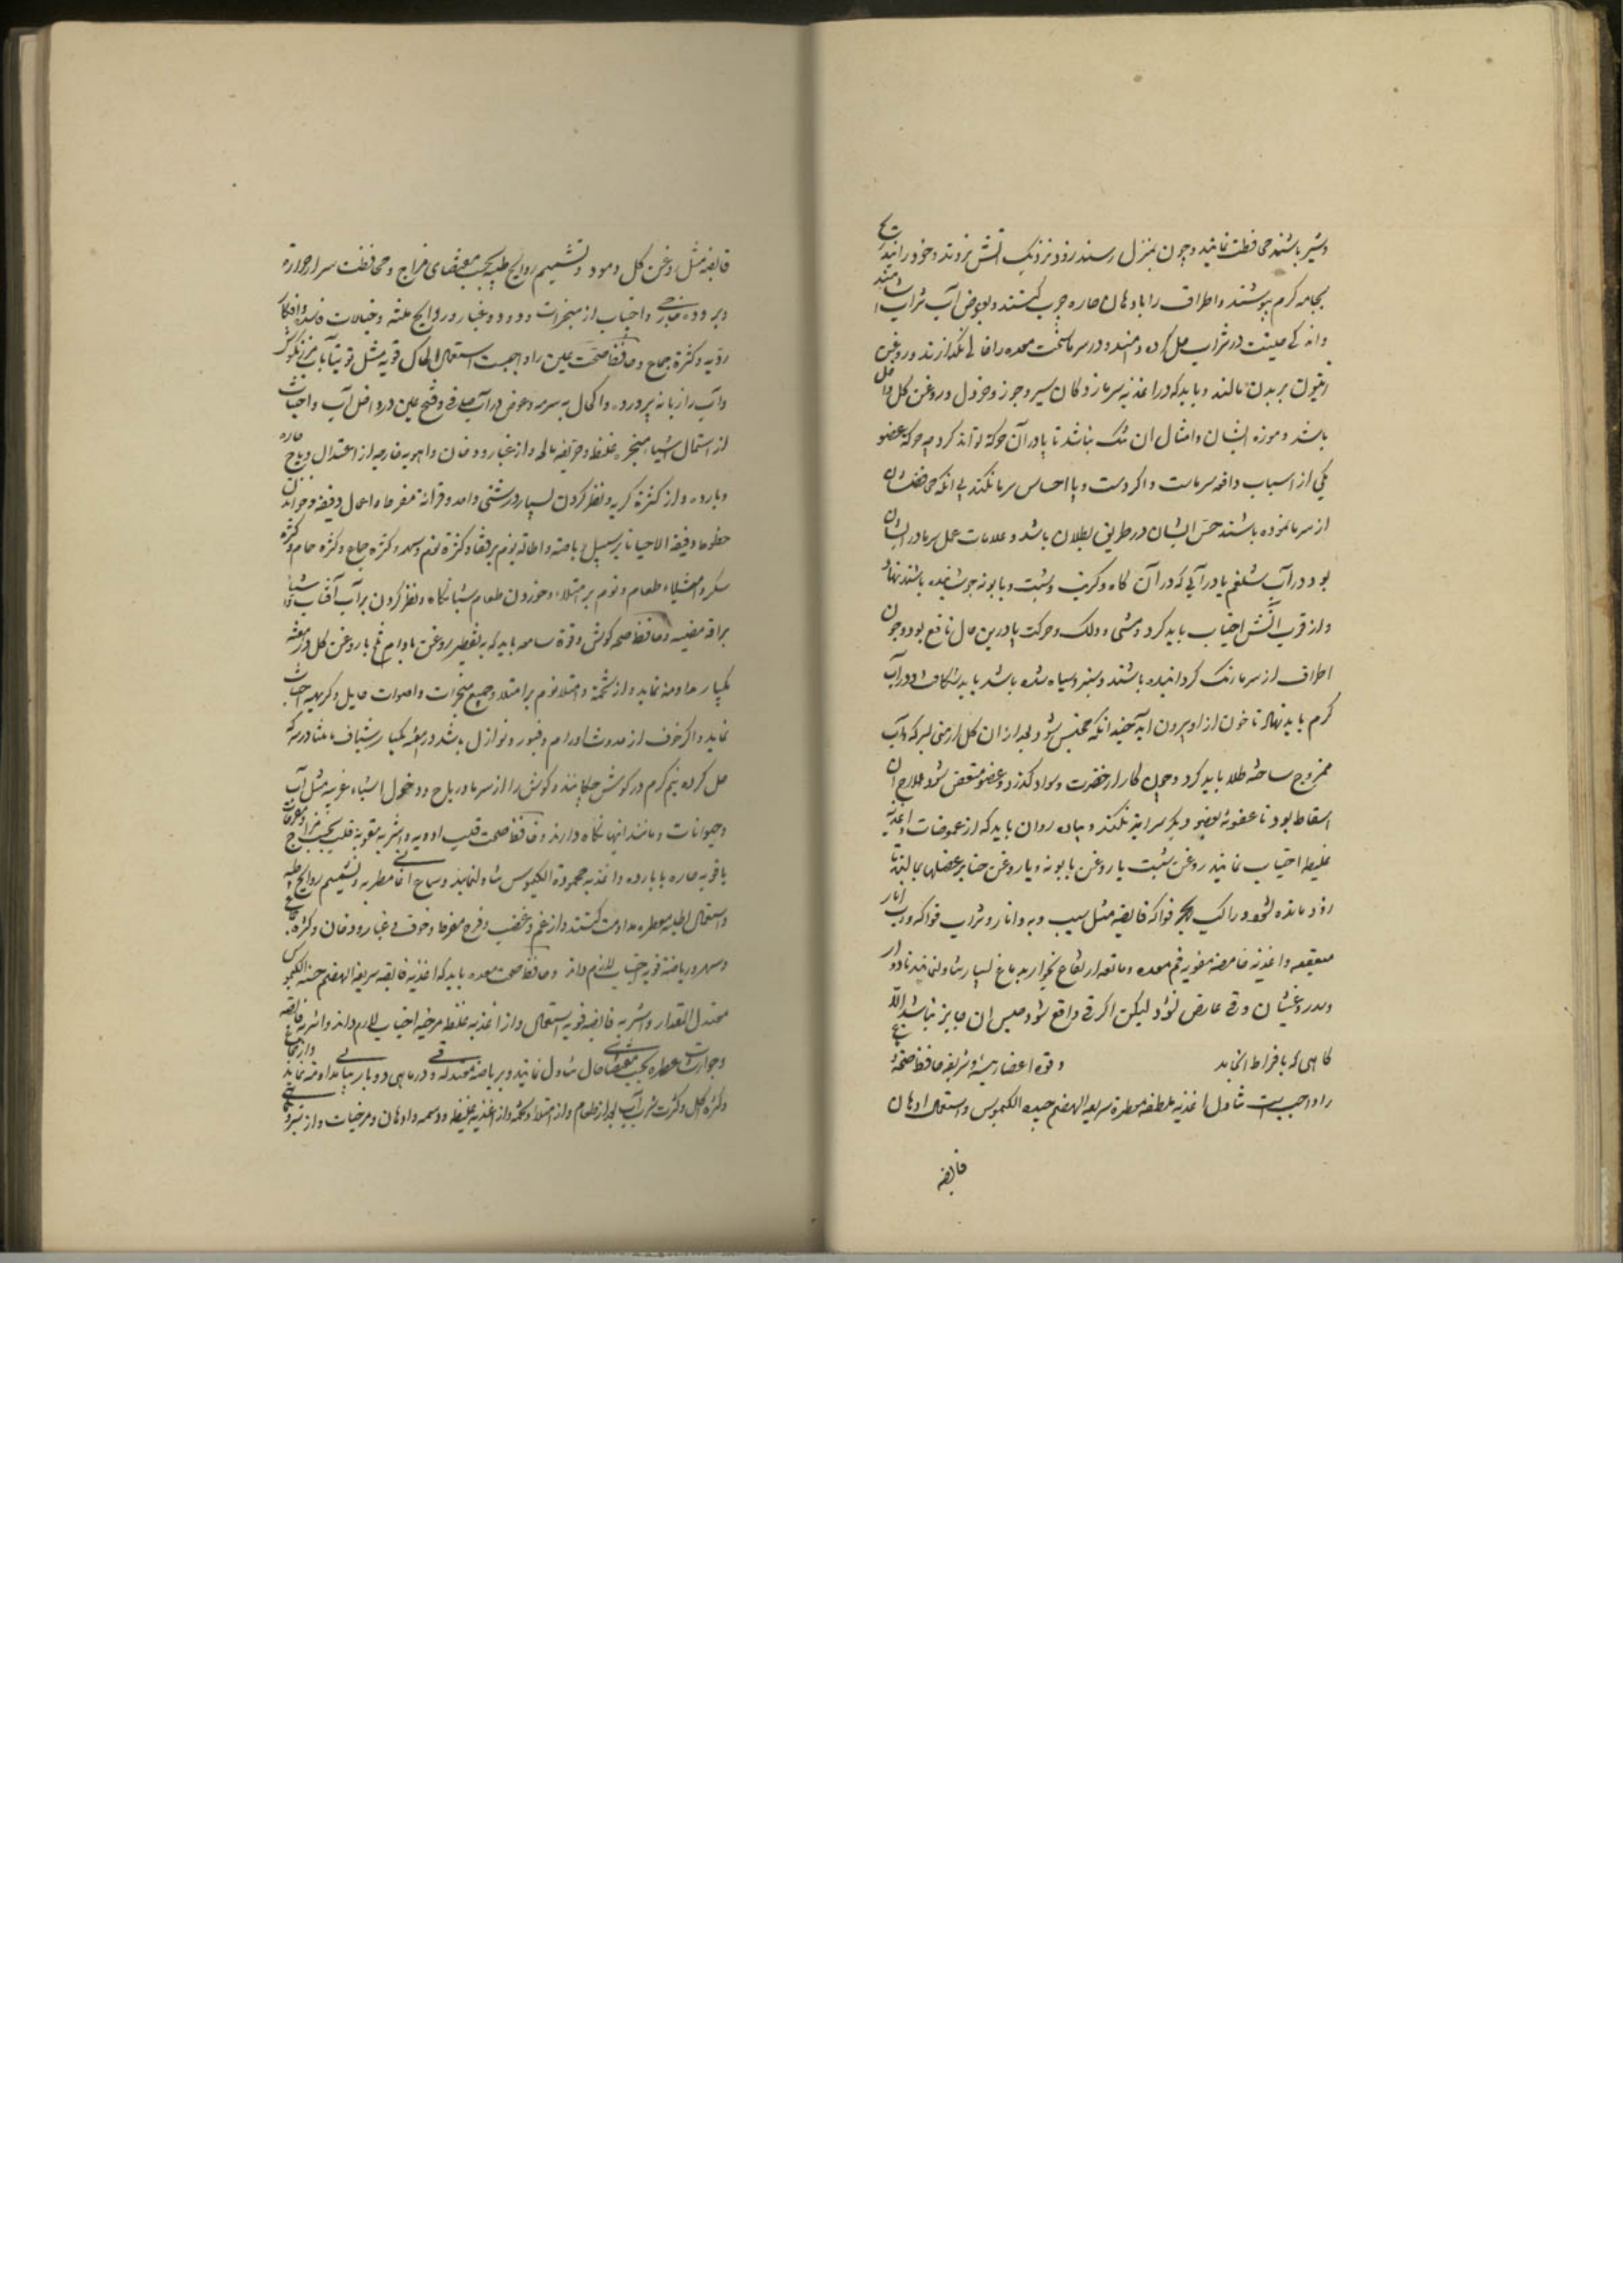 و سیر باشند محافظت نمایند و چون بمنزل رسند زود نزدیک آتش نروند و خود را
بجامه گرم بپوشند و اطراف را بادهان حاره چرب کنند و بعوض آب شراب
در شراب حل کرده و در سرما سخت معده را خالی نگذارند و روغن
زیتون بر بدن مالند و باید که در اغذیه سرما زدگان سیر و جوز و خردل و روغن گل داخل
باشد و موزه ایشان و امثال آن تنک نباشد تا پا در آن حرکة تواند کرد چه حرکة عضو
یکی از اسباب دافعه سرماست و اگر دست و پا احساس سرما نکند بی آنکه
از سرما نموده باشند حس ایشان در طریق بطلان باشد و علامات عمل سرما در ایشان
بود در آب شلغم یا در آبی که در آن کاه و کرنب و شبت و بابونه جوشیده باشند نهاد
و از قرب آتش اجتناب باید کرد و مشی و دلک و حرکت پا درین حال نافع بود و چون
اطراف از سرما رنک گردانیده باشند و سبز و سیاه شده باشد باید شکافت و در آب
گرم باید نهاد تا خون از او بیرون آید چندانکه محتبس شود و بعد از آن گل ارمنی بسرکه و آب
ممزوج ساخته طلا باید کرد و چون کار از خضرت و سواد گذرد و عضو متعفن شود علاج آن
اسقاط بود تا عفونة بعضو دیگر سرایت نکند و پیاده روان باید که از حموضات و اغذیه
غلیظ اجتناب نمایند روغن شبت یا روغن بابونه و یا روغن حنا بر عضلهای بمالند تا
زود مانده نشوند و راکب فواکه قابضه مثل سیب و به و انار و شراب فواکه و رب انار
و اغذیه حامضه مقویه فم معده و مانعه ارتفاع بخار بدماغ بسیار تناول نمایند تا دوار
و سدر و غثیان و قی عارض نشود لیکن اگر قی واقع شود حبس آن جایز نباشد الا
کاهی که بافراط انجامد و قوة اعضا رئیسه و شریفه حافظ صحة
را واجبست تناول اغذیه ملطفه معطره سریعة الهضم جیدة الکیموس و استعمال ادهان
قابضه
قابضه مثل روغن گل و مورد و تشمیم روایح طیبه بحسب مقتضای مزاج و محافظت سر از حرارة
و برودة خارجی و اجتناب از مبخرات و دود و غبار و روایح منتنه و خیالات فاسده و افکار
ردیه و کثرة جماع و حافظ صحت عین را واجبست استعمال اکحال قویه مثل توتیا بآب مرزنگوش
و آب رازیانه پرورده و اکتحال به سرمه و غوص در آب صافی و فتح عین در داخل آب و اجتناب
از استعمال اشیاء مبخره غلیظ و حریفه مالحه و از غبار و دخان و اهویه خارجه از اعتدال و ریاح حاره
و بارده و از کثرة گریه و نظر کردن بسیار در شئی واحد و قرائة مفرط و اعمال دقیقه و خواندن
خطوط دقیقه الا احیانا بر سبیل ریاضته و اطاله نوم بر قفا و کثرة نوم و سهر و کثرة جماع و کثرة حمام و کثرة
سکر و امتلاء طعام و نوم بر امتلاء و خوردن طعام شبانگاه و نظر کردن بر آب آفتاب و اشیاء
براقه مضیئه و حافظ صحه گوش و قوة سامعه باید که به تقطیر روغن بادام تلخ یا روغن گل در هفته
یکبار مداومة نماید و از تخمه و امتلا و نوم بر امتلا و جمیع مبخرات و اصوات هایل و کریهه اجتناب
نماید و اگر خوف از حدوث اورام و بثور و نوازل باشد در هفته یکبار شیاف مامیثا در سرکه
حل کرده نیم گرم در گوش چکانند و گوش را از سرما و ریاح و دخول اشیاء غریبه مثل آب
و حیوانات و مانند اینها نگاه دارند و حافظ صحت قلب ادویه و اشربه مقویه قلب بحسب مزاج
یاقوتیه حاره یا بارده و اغذیه محموده الکیموس تناول نمایند و سماع اغانی مطربه و تشمیم روایح طیبه
و استعمال اطلیه معطره مداومت کنند و از غم و غضب و فرح مفرط و خوف و غبار و دخان و کثرة جماع
و سهر و ریاضة قویه اجتناب لازم دانند و حافظ صحت معده باید که اغذیه قابضه سریعة الهضم حسنه الکیموس
معتدل المقدار و اشربه قابضه قویه استعمال و از اغذیه غلیظ مرخیه اجتناب لازم دانند و اشربه قابضه
و جوارشات عطره بحسب مقتضای حال تناول نمایند و بر ریاضة معتدله و در ماهی دو بار بقی مداومة نمایند و از جماع
و کثرة اکل و کثرت شرب آب بعد از طعام و از امتلا و تخمه و از اغذیه غلیظه و دسمه و ادهان و مرخیات و از